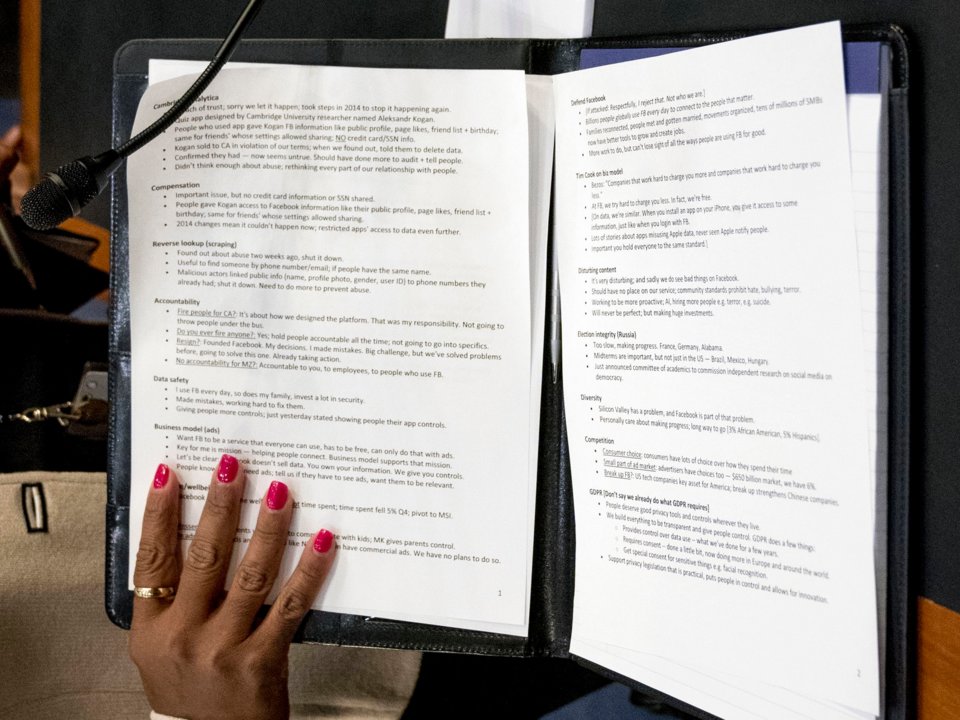 Cambridge Analytica
ch of trust; sorry we let it happen; took steps in 2014 to stop it happening again.
Quiz app designed by Cambridge University researcher named Aleksandr Kogan.
• People who used app gave Kogan FB information like public profile, page likes, friend list + birthday,
same for friends' whose settings allowed sharing; NO credit card/SSN info.
• Kogan sold to CA in violation of our terms; when we found out, told them to delete data.
• Confirmed they had — now seems untrue. Should have done more to audit + tell people.
• Didn't think enough about abuse; rethinking every part of our relationship with people.
Compensation
• Important issue, but no credit card information or SSN shared.
• People gave Kogan access to Facebook information like their public profile, page likes, friend list +
birthday; same for friends' whose settings allowed sharing.
• 2014 changes mean it couldn't happen now; restricted apps' access to data even further.
Reverse lookup (scraping)
• Found out about abuse two weeks ago, shut it down.
• Useful to find someone by phone number/email; if people have the same name.
• Malicious actors linked public info (name, profile photo, gender, user ID) to phone numbers they
already had; shut it down. Need to do more to prevent abuse.
Accountability
• Fire people for CA?: It's about how we designed the platform. That was my responsibility. Not going to
throw people under the bus.
• Do you ever fire anyone?: Yes; hold people accountable all the time; not going to go into specifics.
• Resign?: Founded Facebook. My decisions. I made mistakes. Big challenge, but we've solved problems
before, going to solve this one. Already taking action.
• No accountability for MZ?: Accountable to you, to employees, to people who use FB.
Data safety
• I use FB every day, so does my family, invest a lot in security.
• Made mistakes, working hard to fix them.
• Giving people more controls; just yesterday stated showing people their app controls.
Business model (ads)
• Want FB to be a service that everyone can use, has to be free, can only do that with ads.
• Key for me is mission — helping people connect. Business model supports that mission.
• Let's be clear ook doesn't sell data. You own your information. We give you controls.
People know need ads; tell us if they have to see ads, want them to be relevant.
/wellbei
cebook we time spent; time spent fell 5% Q4; pivot to MSI.
ents to com te with kids; MK gives parents control.
ds an like N in have commercial ads. We have no plans to do so.
1
Defend Facebook
• [If attacked: Respectfully, I reject that. Not who we are.]
• Billions people globally use FB every day to connect to the people that matter.
• Families reconnected, people met and gotten married, movements organized, tens of millions of SMBs
now have better tools to grow and create jobs.
• More work to do, but can't lose sight of all the ways people are using FB for good.
Tim Cook on biz model
• Bezos: "Companies that work hard to charge you more and companies that work hard to charge you
less."
• At FB, we try hard to charge you less. In fact, we're free.
• [On data, we're similar. When you install an app on your iPhone, you give it access to some
information, just like when you login with FB.
• Lots of stories about apps misusing Apple data, never seen Apple notify people.
• Important you hold everyone to the same standard.]
Disturbing content
• It's very disturbing; and sadly we do see bad things on Facebook.
• Should have no place on our service; community standards prohibit hate, bullying, terror.
• Working to be more proactive; AI, hiring more people e.g. terror, e.g. suicide.
• Will never be perfect; but making huge investments.
Election integrity (Russia)
• Too slow, making progress. France, Germany, Alabama.
• Midterms are important, but not just in the US — Brazil, Mexico, Hungary.
• Just announced committee of academics to commission independent research on social media on
democracy.
Diversity
• Silicon Valley has a problem, and Facebook is part of that problem.
• Personally care about making progress; long way to go [3% African American, 5% Hispanics].
Competition
• Consumer choice: consumers have lots of choice over how they spend their time
• Small part of ad market: advertisers have choices too — $650 billion market, we have 6%.
• Break up FB?: US tech companies key asset for America; break up strengthens Chinese companies.
GDPR [Don't say we already do what GDPR requires]
• People deserve good privacy tools and controls wherever they live.
• We build everything to be transparent and give people control. GDPR does a few things:
○ Provides control over data use – what we've done for a few years.
○ Requires consent – done a little bit, now doing more in Europe and around the world.
○ Get special consent for sensitive things e.g. facial recognition.
• Support privacy legislation that is practical, puts people in control and allows for innovation.
2